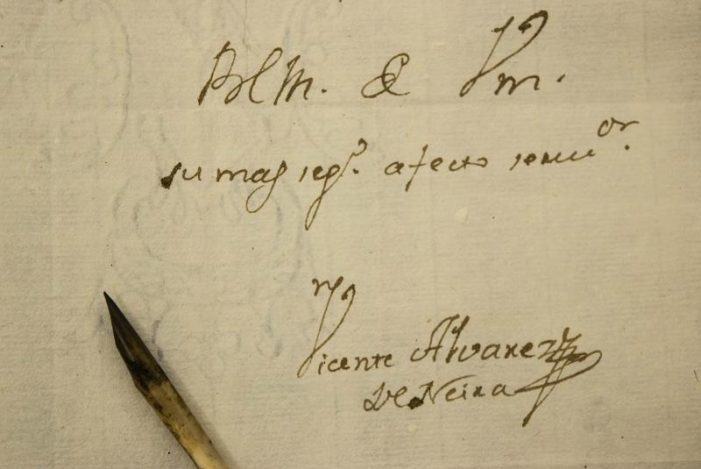 BLM. de Vm.
su mas segr. afecto servior.
Vicente Alvarez
De Neira